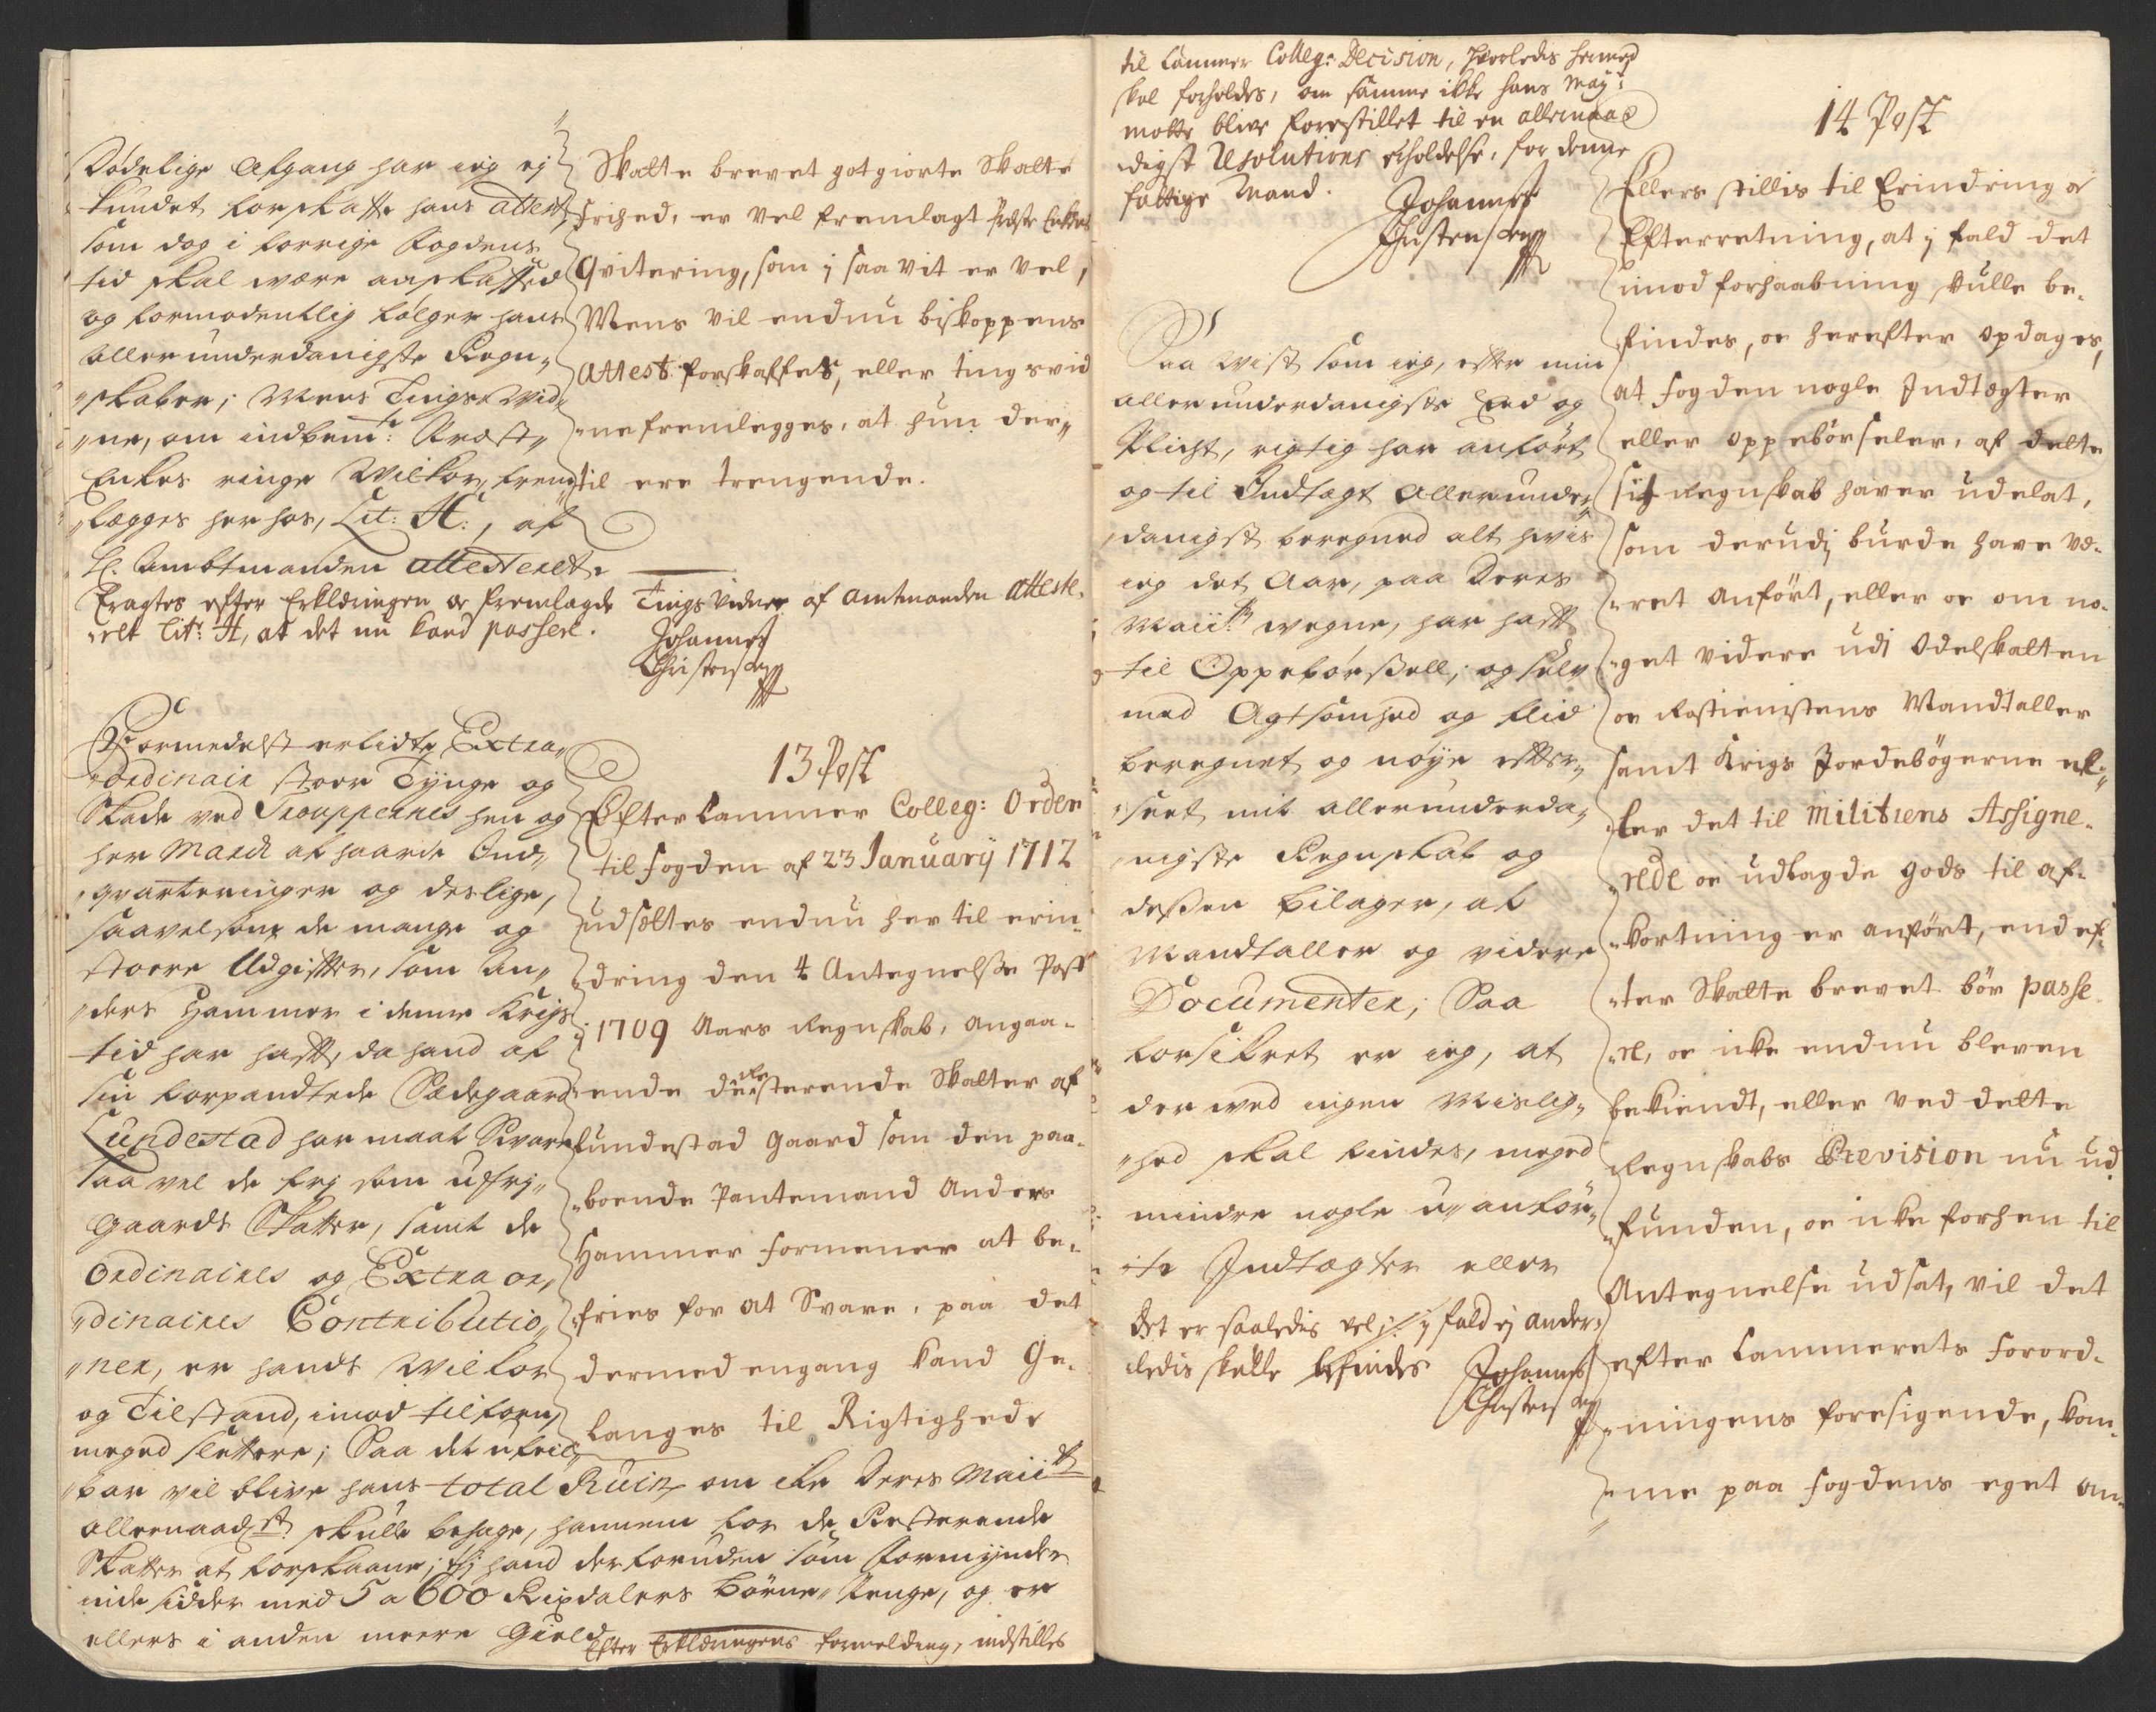 Dødelige Afgang har ieg ej
kundet forskaffe hans attest,
som dog i forrige Fogdens
tid skal være anskaffed
og formodentlig følger hans
allerunderdanigste Regn„
„skaber; Mens Tings-Vid„
„ne, om indbemte: Præste„
Enkes ringe Vilkor, frem„
„legges her hos, Lit: H:, af
Hr. Ambtmanden attesterett.
Skatte brevet gotgiorte Skatte
frihed, er vel fremlagt
Qvitering, som j saa vit er vel,
Mens vil endnu biskoppens
attest forskaffes, eller tings vid
„ne fremlegges, at hun der„
til ere trengende.
Eragtes efter Erklæringen oc fremlagde Tings Vidner af Amtmanden atteste„
„rett Litr: H, at det nu kand passere.
Johannes
Christensen
Formedelst erlidte Extra„
„ordinair stoer Tynge og
Skade ved Trouppernes hen og
her March af haarde Ind„
„qvarteringer og deslige,
saavelsom de mange og
stoere Udgifter, som An„
„ders Hammer i denne Krigs
tid har hafft, da hand af
sin forpandtede Sædegaard
Lundestad har maat Svare
saa vel de frj som ufrj„
gaards Skatter, samt de
Ordinaires og Extraor„
„dinaires Contributio„
„ner, er hands Vilkor
og Tilstand, imod tilforn,
meged slettere; Saa det ufeil„
„bar vil blive hans total Ruin, om icke Deres Maiitt
allernaadst skulle behage, hannem for de Resterende
Skatter at forskaane; thj hand der foruden som Formynder
inde sidder med 5 a 600 Rixdalers Børne„Penge, og er
ellers i anden meere Gield.
13 Post
Efter Cammer Colleg: Orden
til fogden af 23 January 1712
udsættes endnu her til erin„
„dring den 4 Antegnelse Post
j 1709 Aars Regnskab, angaa„
„ende de resterende Skatter af
Lundestad gaard som den paa„
„boende Pantemand Anders
Hammer formener at be„
„fries for at Svare, paa det
dermed engang kand Ge„
„langes til Rigtighed
Efter Erklæringens formelding, indstilles
til Cammer Colleg: Decision, hvorledes hermed
skal forholdes, om samme ikke hans May:
motte blive forestillet til en allernaa„
„digst Resolutions erholdelse, for denne
fattige Mand.
Johannes
Christensen
Saa vist som ieg, efter min
allerunderdanigste Eed og
Plicht, rigtig har anført
og til Indtægt allerunder„
„danigst beregned alt hvis
ieg det Aar, paa Deres
Maiitts vegne, har hafft
til Oppebørsell; og selv
med Agtsomhed og flid
beregnet og nøye efter„
„seet mit allerunderda„
„nigste Regnskab og
dessen bilager, af
Mandtaller og videre
Documenter; Saa
forsikret er ieg, at
der ved ingen Mislig„
„hed skal findes, meged
mindre nogle u„anfør„
„te Indtægter eller
Det er saaledis vel, j fald ej ander„
„ledis skulle befindes
Johannes
Christensen
14 Post
Ellers stillis til Erindring oc
Efterretning, at j fald det
imod forhaabning skulle be„
„findes, oc herefter opdages,
at fogden nogle Indtægter
eller oppebørseler, af dette
sit Regnskab haver udelat,
som derudj burde have væ„
„ret anført, eller oc om no„
„get videre udi Odelskatten
oc Rostienistens Mandtaller
samt Krigs Jordebøgerne ef„
„ter det til Militiens Assigne„
„rede oc udlagde gods til af„
„kortning er anført, end ef„
„ter Skatte brevet bør passe„
„re, oc icke endnu bleven
bekiendt, eller ved dette
Regnskabs Revision nu ud„
„funden, oc icke forhen til
Antegnelse udsat, vil det
efter Cammerets forord„
„ningens foresigende, kom„
„me paa fogdens eget an„